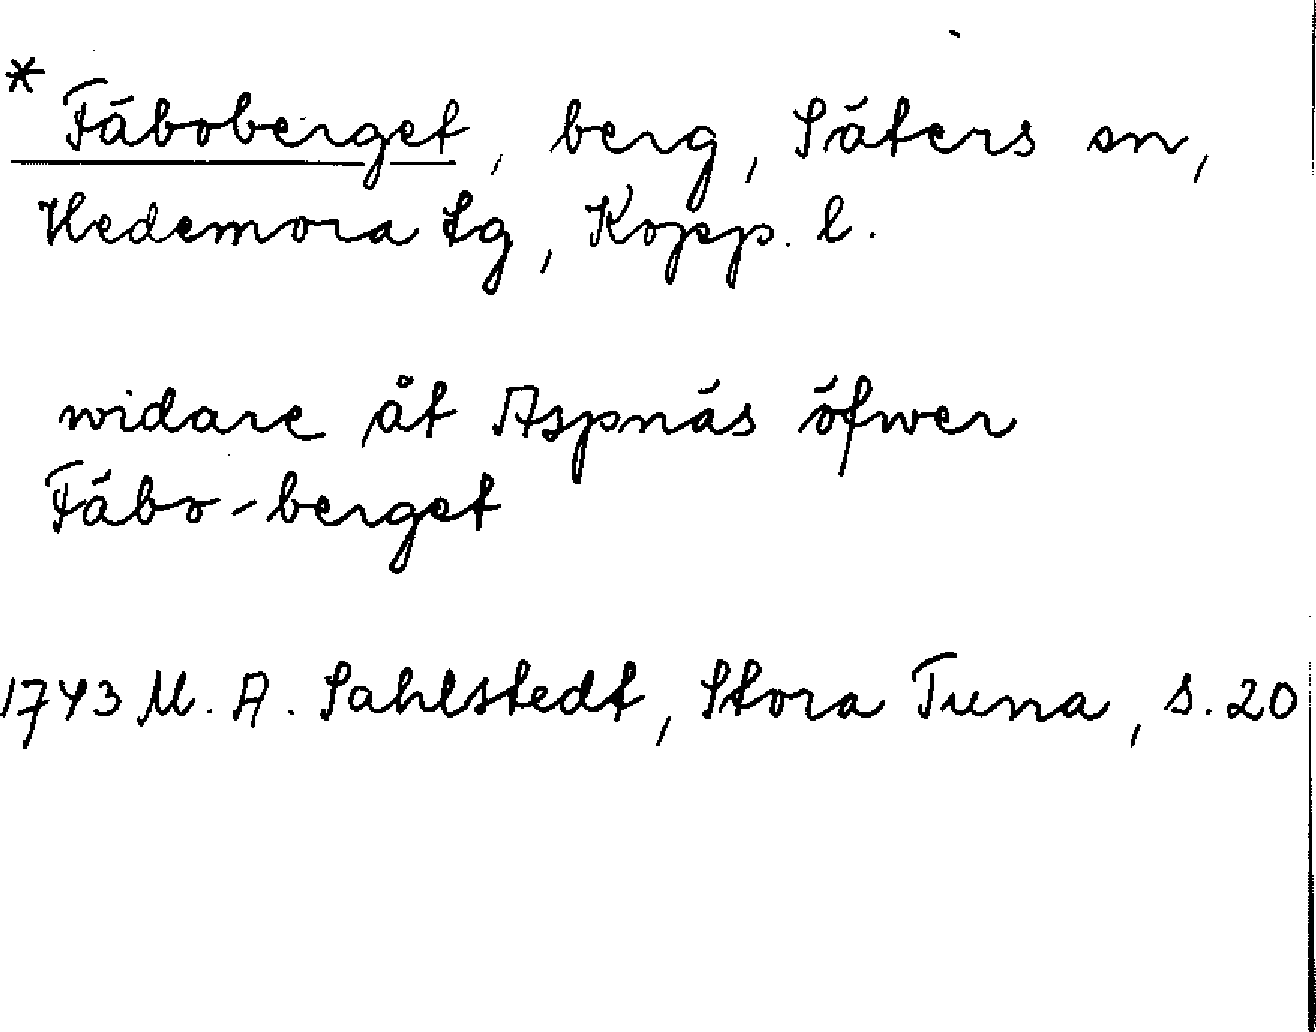 * Fäboberget, berg, Säters sn,
Hedemora tg, Kopp. l.
widare åt Aspnäs öfwer
Fäbo-berget
1743 M. A. Sahlstedt, Stora Tuna, s. 20